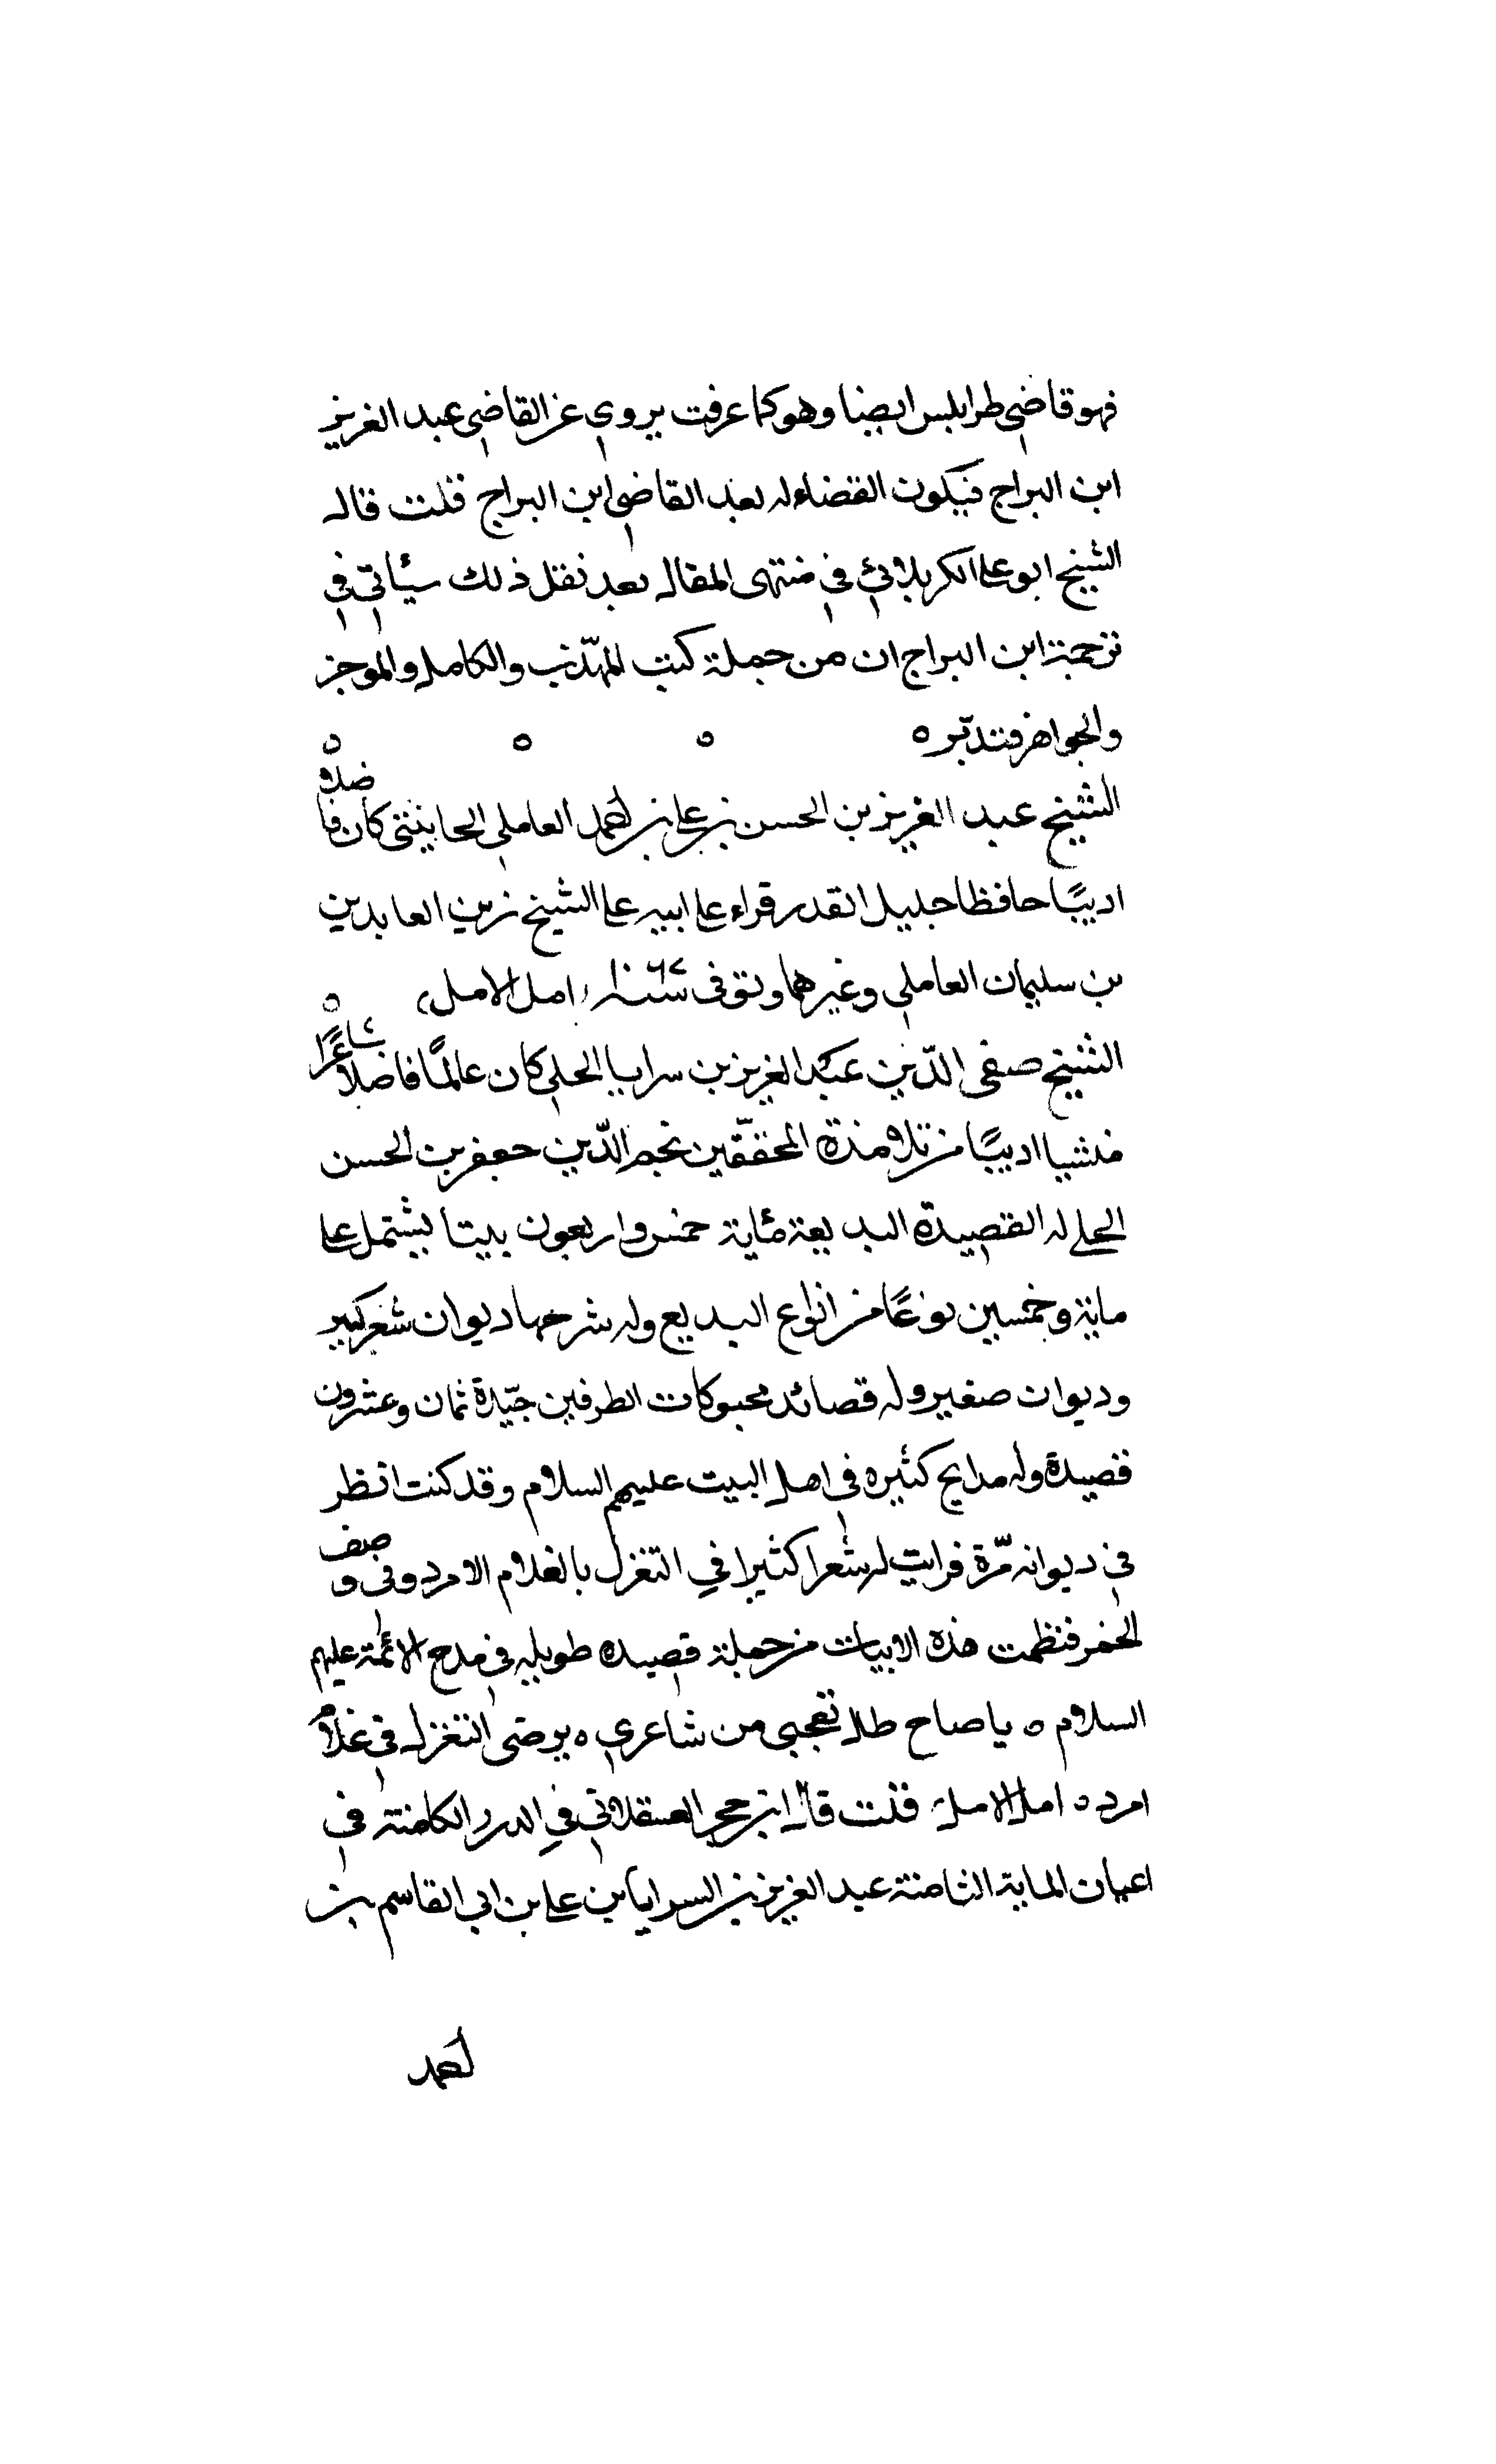 فهو قاضي طرابلس ايضا وهو كما عرفت يروي عن القاضي عبد العزيز
ابن البراج فيكون القضاء له بعد القاضي ابن البراج قلت قال
الشيخ ابو على الكربلائي في منتهى المقال بعد نقل ذلك سيئاتي في
ترجمة ابن البراج ان من جملة كتب المهذّب والكامل والموجز
والجواهر فتدبّر ه ه ه ه
الشيخ عبد العزيز بن الحسن بن علي بن احمد العاملي الحانيني كان فاضلا
اديبًا حافظا جليل القدر قراء على ابيه على الشيخ زين العابدين
بن سليمان العاملي وغيرهما وتوفى سنة ١٠٦٧ امل الامل ه
الشيخ صفي الدّين عبد العزيز بن سرايا الحلي كان عالمًا فاضلا شاعرًا
منشيا اديبًا من تلامذة المحقّقين نجم الدّين جعفر بن الحسن
الحلي له القصيدة البديعة مئاية خمس واربعون بيتا يشتمل على
ماية وخمسين نوعًا من انواع البديع وله شرحها ديوان شعر كبير
وديوان صغير وله قصائد محبوكات الطرفين جيّدة ثمان وعشرون
قصيدة وله مدايح كثيره في اهل البيت عليهم السلام وقد كنت انظر
في ديوانه مرّة فرايت له شعرا كثيرا في التغزل بالغلام الامرد وفي وصف
الخمر فنظمت هذه الابيات من جملة قصيده طويله في مدح الائمة عليهم
السلام ه يا صاح طال تعجبي من شاعري ه يرضى التغزل في غلام
امرد ه امل الامل قلت قال ابن حجر العسقلاني في الدرر الكامنة في
اعيان الماية الثامنة عبد العزيز بن السرايا بن علي بن ابي القاسم بن
احمد